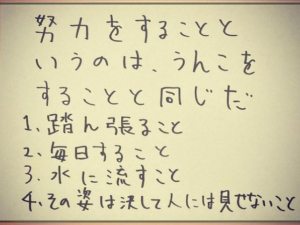 努力をすることと
いうのは、うんこを
することと同じだ
1、踏ん張ること
2、毎日すること
3、水に流すこと
4、その姿は決して人には見せないこと